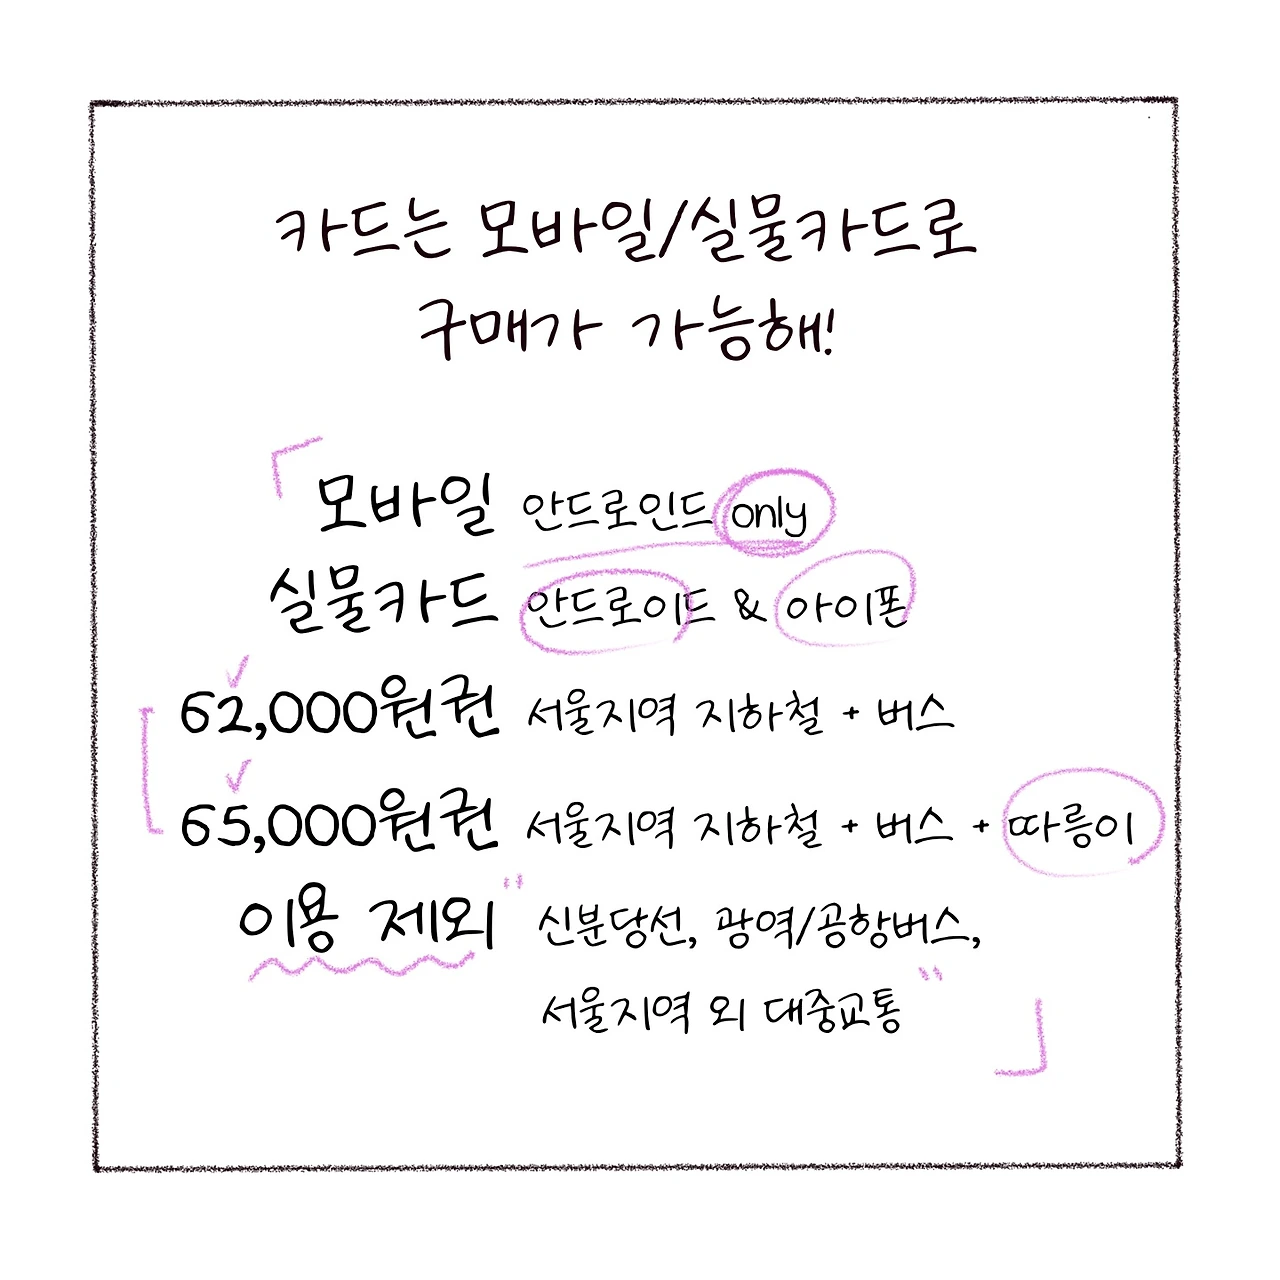 카드는 모바일/실물카드로
구매가 가능해!
모바일 안드로인드 only
실물카드 안드로이드 & 아이폰
62,000원권 서울지역 지하철 + 버스
65,000원권 서울지역 지하철 + 버스 + 따릉이
이용 제외 " 신분당선, 광역/공항버스,
서울지역 외 대중교통 "